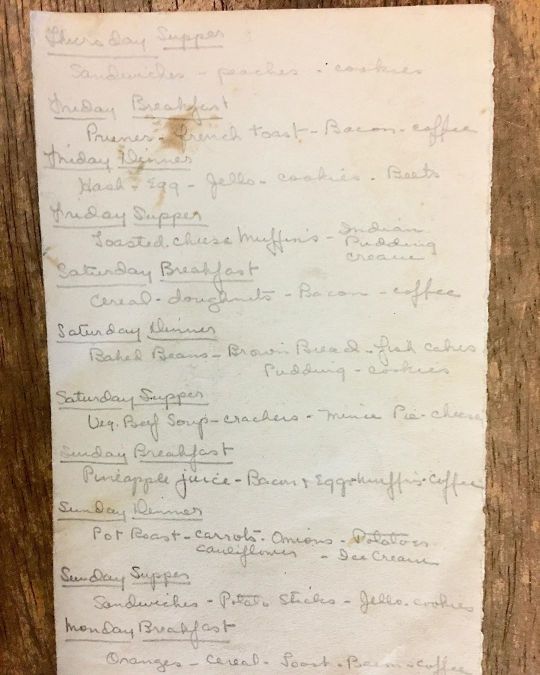 Thursday Supper
Sandwiches - peaches - cookies
Friday Breakfast
Prunes - French toast - Bacon - coffee
Friday Dinner
Hash - Egg - Jello - cookies - Beets
Friday Supper
Toasted cheese Muffins - Indian
Pudding
cream
Saturday Breakfast
Cereal - doughnuts - Bacon - coffee
Saturday Dinner
Baked Beans - Brown Bread - fish cakes
Pudding - cookies
Saturday Supper
Veg. Beef Soup - crackers - Mince Pie - cheese
Sunday Breakfast
Pineapple juice - Bacon + Egg - Muffins - Coffee
Sunday Dinner
Pot Roast - carrots - Onions - Potatoes
cauliflower - Ice Cream
Sunday Supper
Sandwiches - Potato Sticks - Jello - cookies
Monday Breakfast
Oranges - Cereal - Toast - Bacon - coffee